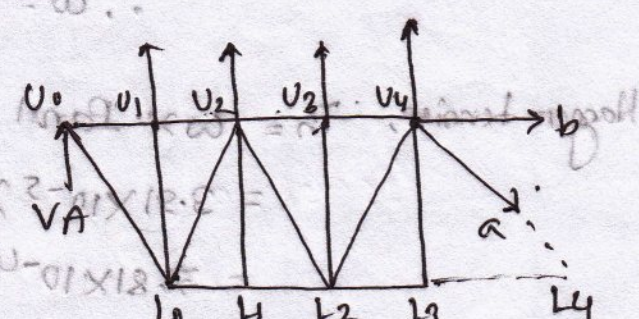 U0 U1 U2 U3 U4 b
VA
a
L0 L1 L2 L3 L4